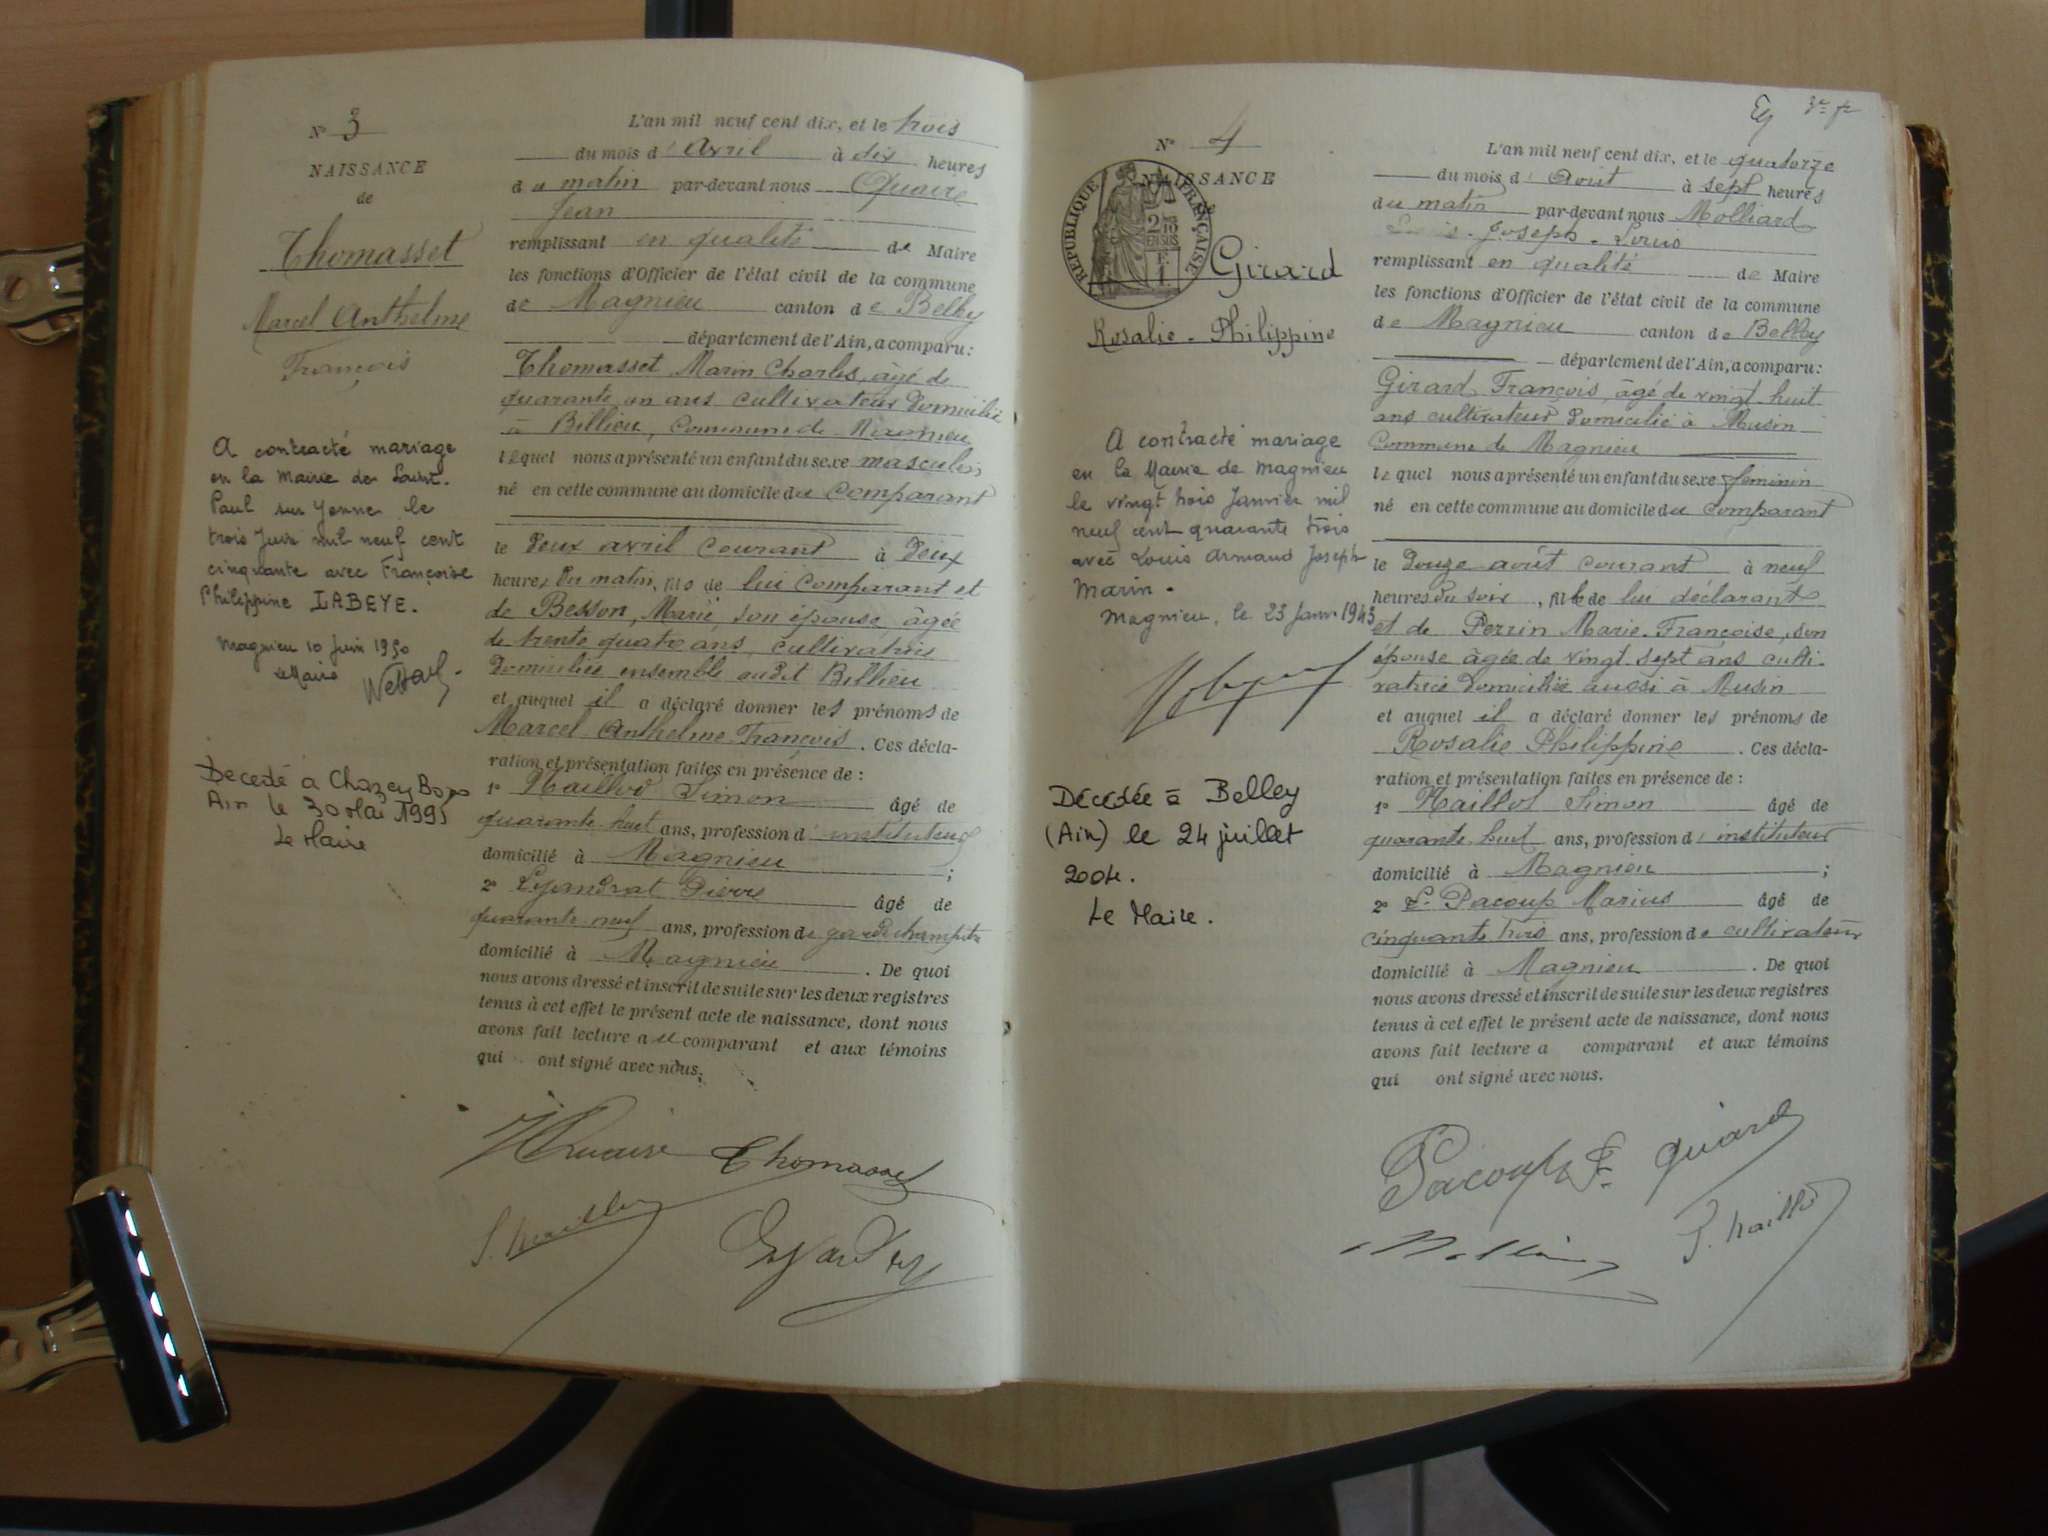 N° 3
NAISSANCE
de
Thomasset
Marcel Anthelme
François
A contracté mariage
en la Mairie de Saint-
Paul sur Yenne le
trois Juin mil neuf cent
cinquante avec Françoise
Philippine LABEYE.
Magnieu 10 Juin 1950
Le Maire
Decedé à Chazey Bons
Ain le 30 Mai 1995
Le Maire
L'an mil neuf cent dix, et le trois
du mois d' Avril à dix heures
du matin par-devant nous Quaire
Jean
remplissant en qualité de Maire
les fonctions d'Officier de l'état civil de la commune
de Magnieu canton de Belley
département de l'Ain, a comparu:
Thomasset Marin Charles, âgé de
quarante un ans cultivateur domicilié
à Billieu, Commune de Magnieu
lequel nous a présenté un enfant du sexe masculin
né en cette commune au domicile du comparant
le deux avril courant à deux
heures du matin, fils de lui comparant et
de Besson, Marie, son épouse, âgée
de trente quatre ans, cultivatrice
domiciliés ensemble audit Billieu
et auquel il a déclaré donner les prénoms de
Marcel Anthelme François. Ces décla-
ration et présentation faites en présence de :
1° Maillod Simon âgé de
quarante huit ans, profession d'instituteur
domicilié à Magnieu ;
2° Lyandrat Pierre âgé de
quarante neuf ans, profession de garde champêtre
domicilié à Magnieu . De quoi
nous avons dressé et inscrit de suite sur les deux registres
tenus à cet effet le présent acte de naissance, dont nous
avons fait lecture au comparant et aux témoins
qui ont signé avec nous.
Quaire Thomasset
N° 4
NAISSANCE
RÉPUBLIQUE FRANÇAISE
2/10
EN SUS
Girard
Rosalie - Philippine
A contracté mariage
en la Mairie de Magnieu
le vingt trois Janvier mil
neuf cent quarante trois
avec Louis Armand Joseph
Marin.
Magnieu, le 23 Janv 1943
Décédée à Belley
(Ain) le 24 juillet
2004.
Le Maire.
L'an mil neuf cent dix, et le quatorze
du mois d' Août à sept heures
du matin par-devant nous Molliard
Joseph - Louis
remplissant en qualité de Maire
les fonctions d'Officier de l'état civil de la commune
de Magnieu canton de Belley
département de l'Ain, a comparu:
Girard François, âgé de vingt-huit
ans cultivateur domicilié à Musin
Commune de Magnieu
lequel nous a présenté un enfant du sexe féminin
né en cette commune au domicile du comparant
le douze août courant à neuf
heures du soir, fille de lui déclarant
et de Perrin Marie-Françoise, son
épouse âgée de vingt sept ans culti-
vatrice domiciliée aussi à Musin
et auquel il a déclaré donner les prénoms de
Rosalie Philippine . Ces décla-
ration et présentation faites en présence de :
1° Maillod Simon âgé de
quarante huit ans, profession d'instituteur
domicilié à Magnieu ;
2° F. Pacoup Marius âgé de
cinquante trois ans, profession de cultivateur
domicilié à Magnieu . De quoi
nous avons dressé et inscrit de suite sur les deux registres
tenus à cet effet le présent acte de naissance, dont nous
avons fait lecture a comparant et aux témoins
qui ont signé avec nous.
Pacoup F. Girard